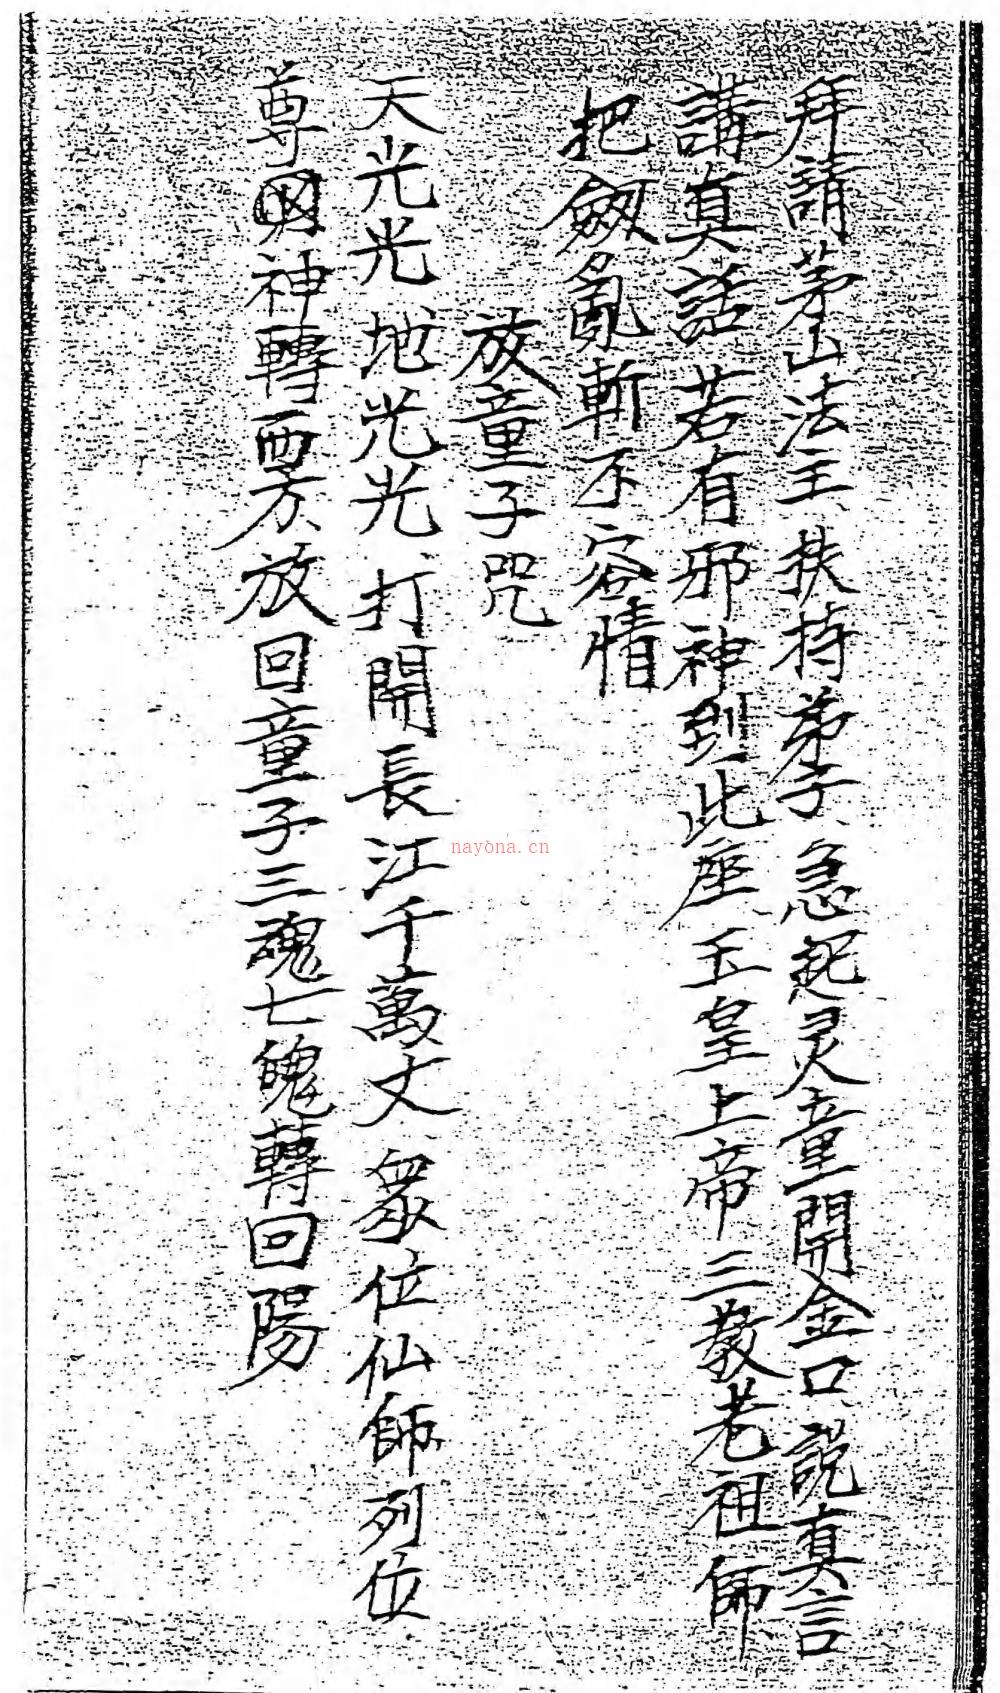 拜請茅山法主扶持弟子急起灵童開金口說真言
講真話若有邪神到此座玉皇上帝三教老祖師
把劔亂斬不容情
放童子咒
天光光地光光打開長江千萬丈衆位仙師列位
尊神轉西方放回童子三魂七魄轉回陽
nayona.cn